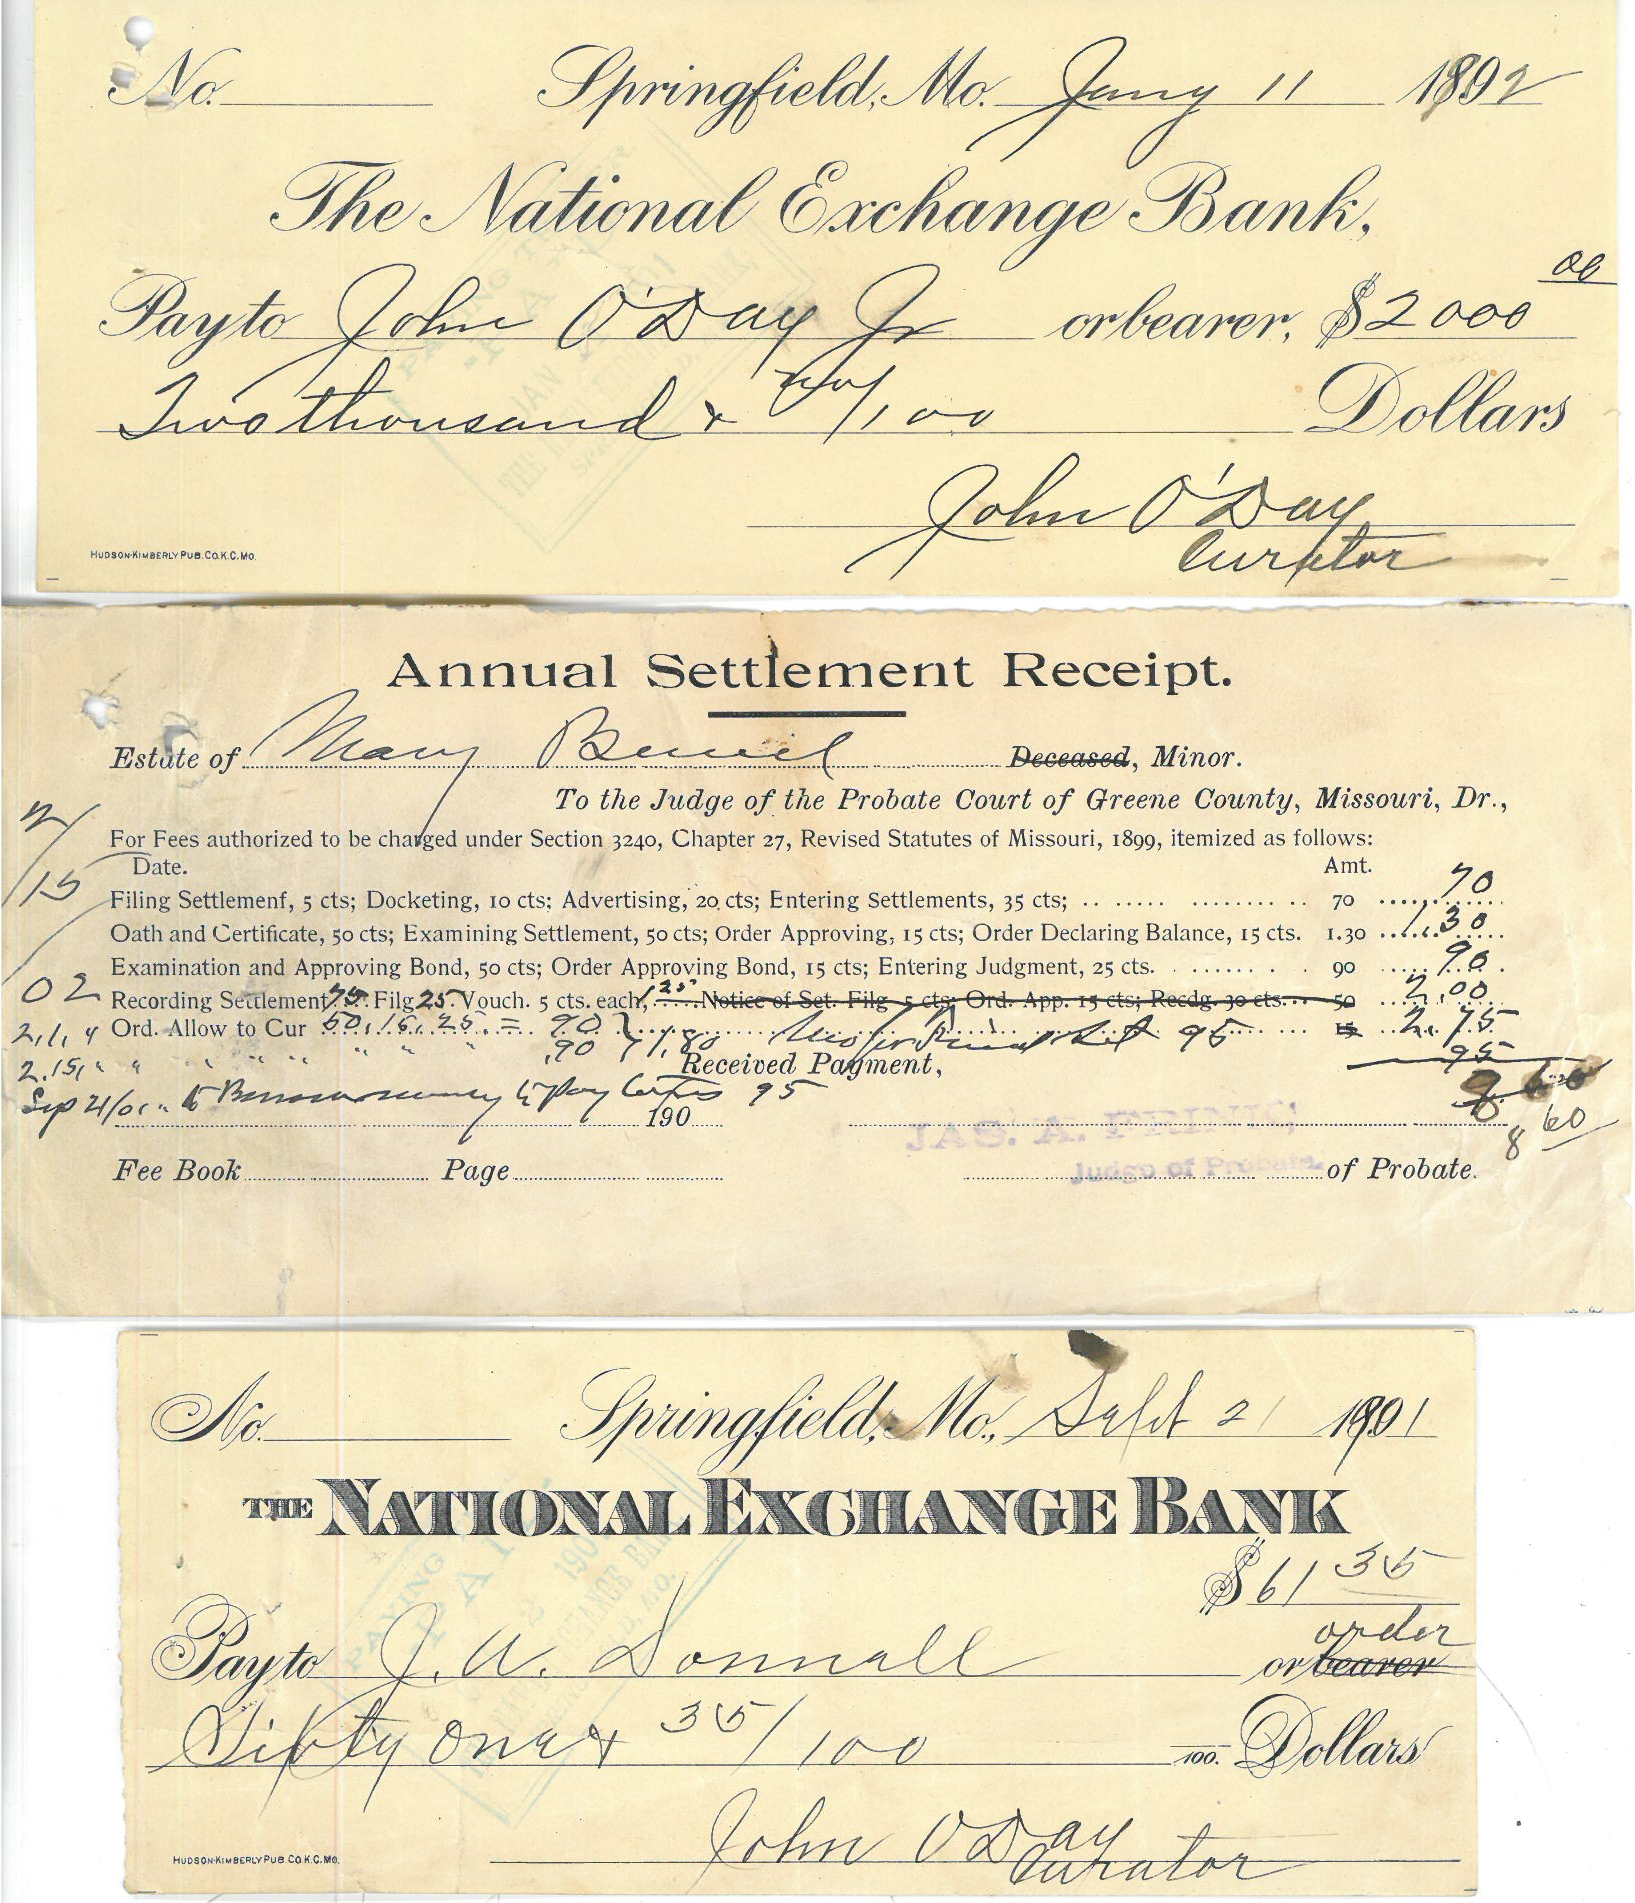 No. Springfield, Mo. Jany 11 1892
The National Exchange Bank,
00
Pay to John O'Day Jr or bearer, $2000
Two thousand & no/100 Dollars
John O'Day
Curator
HUDSON-KIMBERLY PUB. CO. K.C. MO.
PAYING TELLER
JAN
Annual Settlement Receipt.
Estate of Mary Deceased, Minor.
To the Judge of the Probate Court of Greene County, Missouri, Dr.,
2/
For Fees authorized to be charged under Section 3240, Chapter 27, Revised Statutes of Missouri, 1899, itemized as follows:
Date. Amt.
/15 Filing Settlement, 5 cts; Docketing, 10 cts; Advertising, 20 cts; Entering Settlements, 35 cts; 70 70
Oath and Certificate, 50 cts; Examining Settlement, 50 cts; Order Approving, 15 cts; Order Declaring Balance, 15 cts. 1.30 1.30
Examination and Approving Bond, 50 cts; Order Approving Bond, 15 cts; Entering Judgment, 25 cts. 90 90
02 Recording Settlement 75 Filg 25 Vouch. 5 cts. each, 1.25 Notice of Set. Filg 5 cts; Ord. App. 15 cts; Recdg. 30 cts. 50 2.00
2,1, " Ord. Allow to Cur 50, 15, 25 = 90 95 15 2.75
2.15, " " " " " " " .90 } 1,80 Received Payment, 95
Sep 21/01 " to pay 95 8 60
190
8 60
JAS. A.
Judge of Probate
Fee Book Page of Probate.
No. Springfield, Mo., Sept 21 1901
THE NATIONAL EXCHANGE BANK
$61 35
order
Pay to J. W. Donnall or bearer
Sixty One & 35/100 100. Dollars
John O'Day
Curator
HUDSON-KIMBERLY PUB. CO. K.C. MO.
PAYING